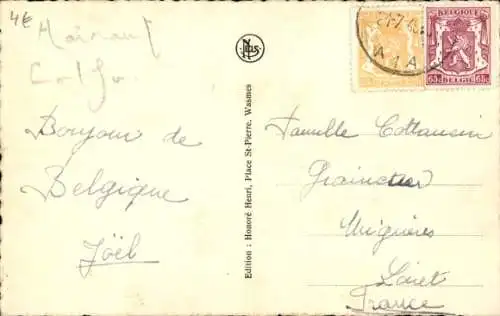 4€
Hainaut
Bonjour de
Belgique
Joël
Nels
Edition : Honoré Henri, Place St-Pierre, Wasmes
BELGIQUE
65c BELGIE 65c
Famille Cottansin
Grainetier
Mignères
Loiret
France